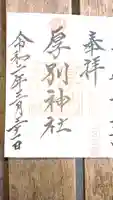 奉拝
厚別神社
令和六年三月二十日